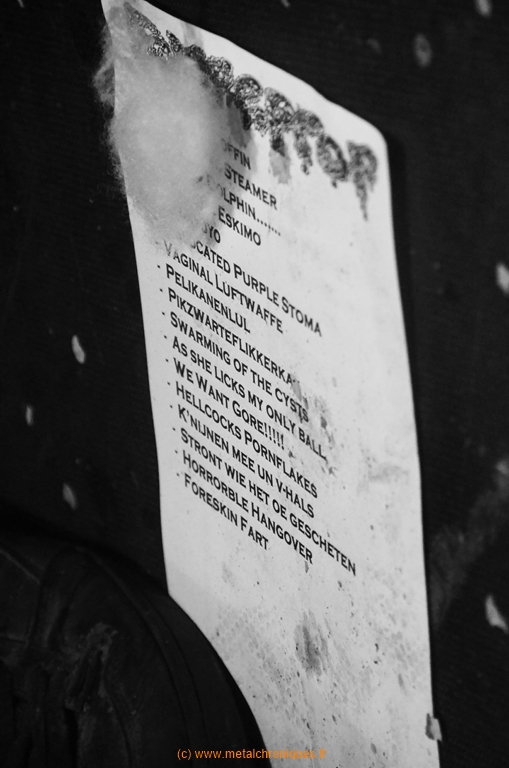 OFFIN
STEAMER
OLPHIN.......
ESKIMO
OYO
CATED PURPLE STOMA
- VAGINAL LUFTWAFFE
- PELIKANENLUL
- PIKZWARTEFLIKKERKA
- SWARMING OF THE CYSTS
- AS SHE LICKS MY ONLY BALL
- WE WANT GORE!!!!!
- HELLCOCKS PORNFLAKES
- K'NIJNEN MEE UN V-HALS
- STRONT WIE HET OE GESCHETEN
- HORRORBLE HANGOVER
- FORESKIN FART
(c) www.metalchroniques.fr